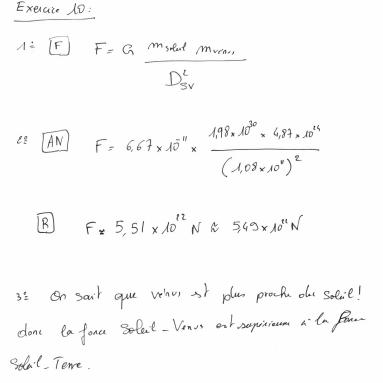 Exercice 10:
1° F F = G m soleil m venus / D²SV
2° AN F = 6,67 × 10⁻¹¹ × 1,98 × 10³⁰ × 4,87 × 10²⁴ / (1,08 × 10¹¹)²
R F = 5,51 × 10²² N ≈ 5,49 × 10²² N
3° On sait que vénus est plus proche du soleil!
donc la force Soleil - Venus est supérieure à la force
Soleil - Terre.